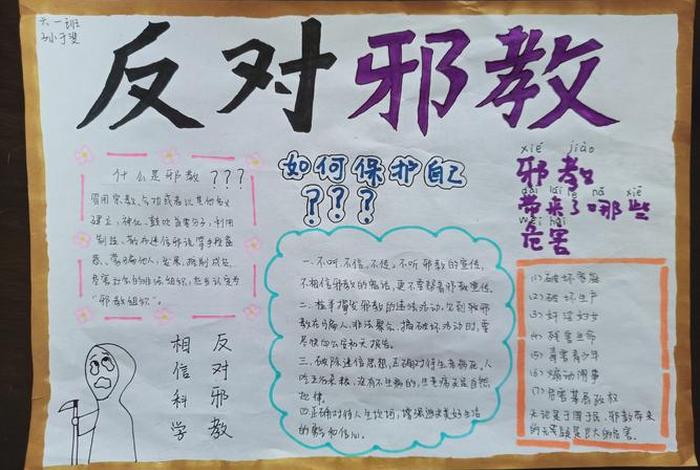 六一班
反对邪教
什么是邪教???
冒用宗教、气功或者以其他名义
建立、神化、鼓吹首要分子,利用
制造、散布迷信邪说等手段蛊
惑、蒙骗他人,发展、控制成员,
危害社会的非法组织,应当认定为
“邪教组织”。
反对邪教
相信科学
如何保护自己
???
一、不听、不信、不传。不听邪教的宣传,
不相信邪教的鬼话,更不要帮着邪教宣传。
二、检举揭发邪教的违法活动,
教在骗人、非法聚会、搞破坏活动时,要
尽快向公安机关报告。
三、破除迷信思想,正确对待生老病死。人
吃五谷杂粮,没有不生病的,生老病死是自然
规律。
四正确对待人生坎坷,增强追求美好生活
的勇气和信心。
xié jiào
邪教
dài lái le nǎ xiē
带来了哪些
wēi hài
危害
(1)破坏家庭
(2)破坏生产
(3)奸淫妇女
(4)残害生命
(5)毒害青少年
(6)煽动闹事
(7)危害基层政权
无论是于国于民、邪教带来
的无疑是巨大的危害。